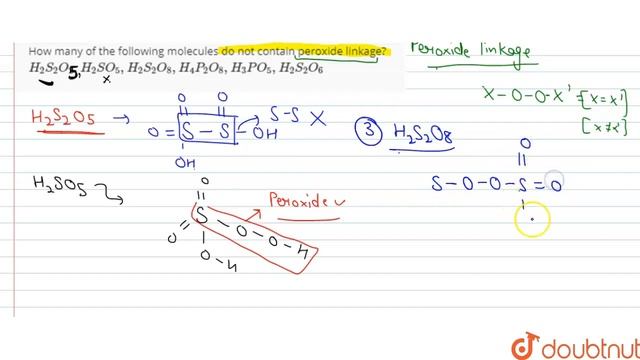 How many of the following molecules do not contain peroxide linkage?
H₂S₂O5, H₂SO₅, H₂S₂O₈, H₄P₂O₈, H₃PO₅, H₂S₂O₆
x
Peroxide linkage
X-O-O-X' [X=X'] [X≠X']
H₂S₂O5 →
O O
O=S-S-OH
OH
S-S X
③ H₂S₂O8
O
S-O-O-S=O
H₂SO5
O
S-O-O-H
O
O-H
Peroxide ✓
doubtnut